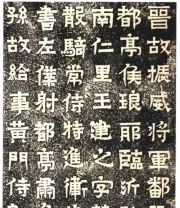 晉故振威將軍鄱
都亭侯琅耶臨沂
南仁里王建之字
散騎常侍特進衛
書左僕射都亭肅
孫故給事黃門侍